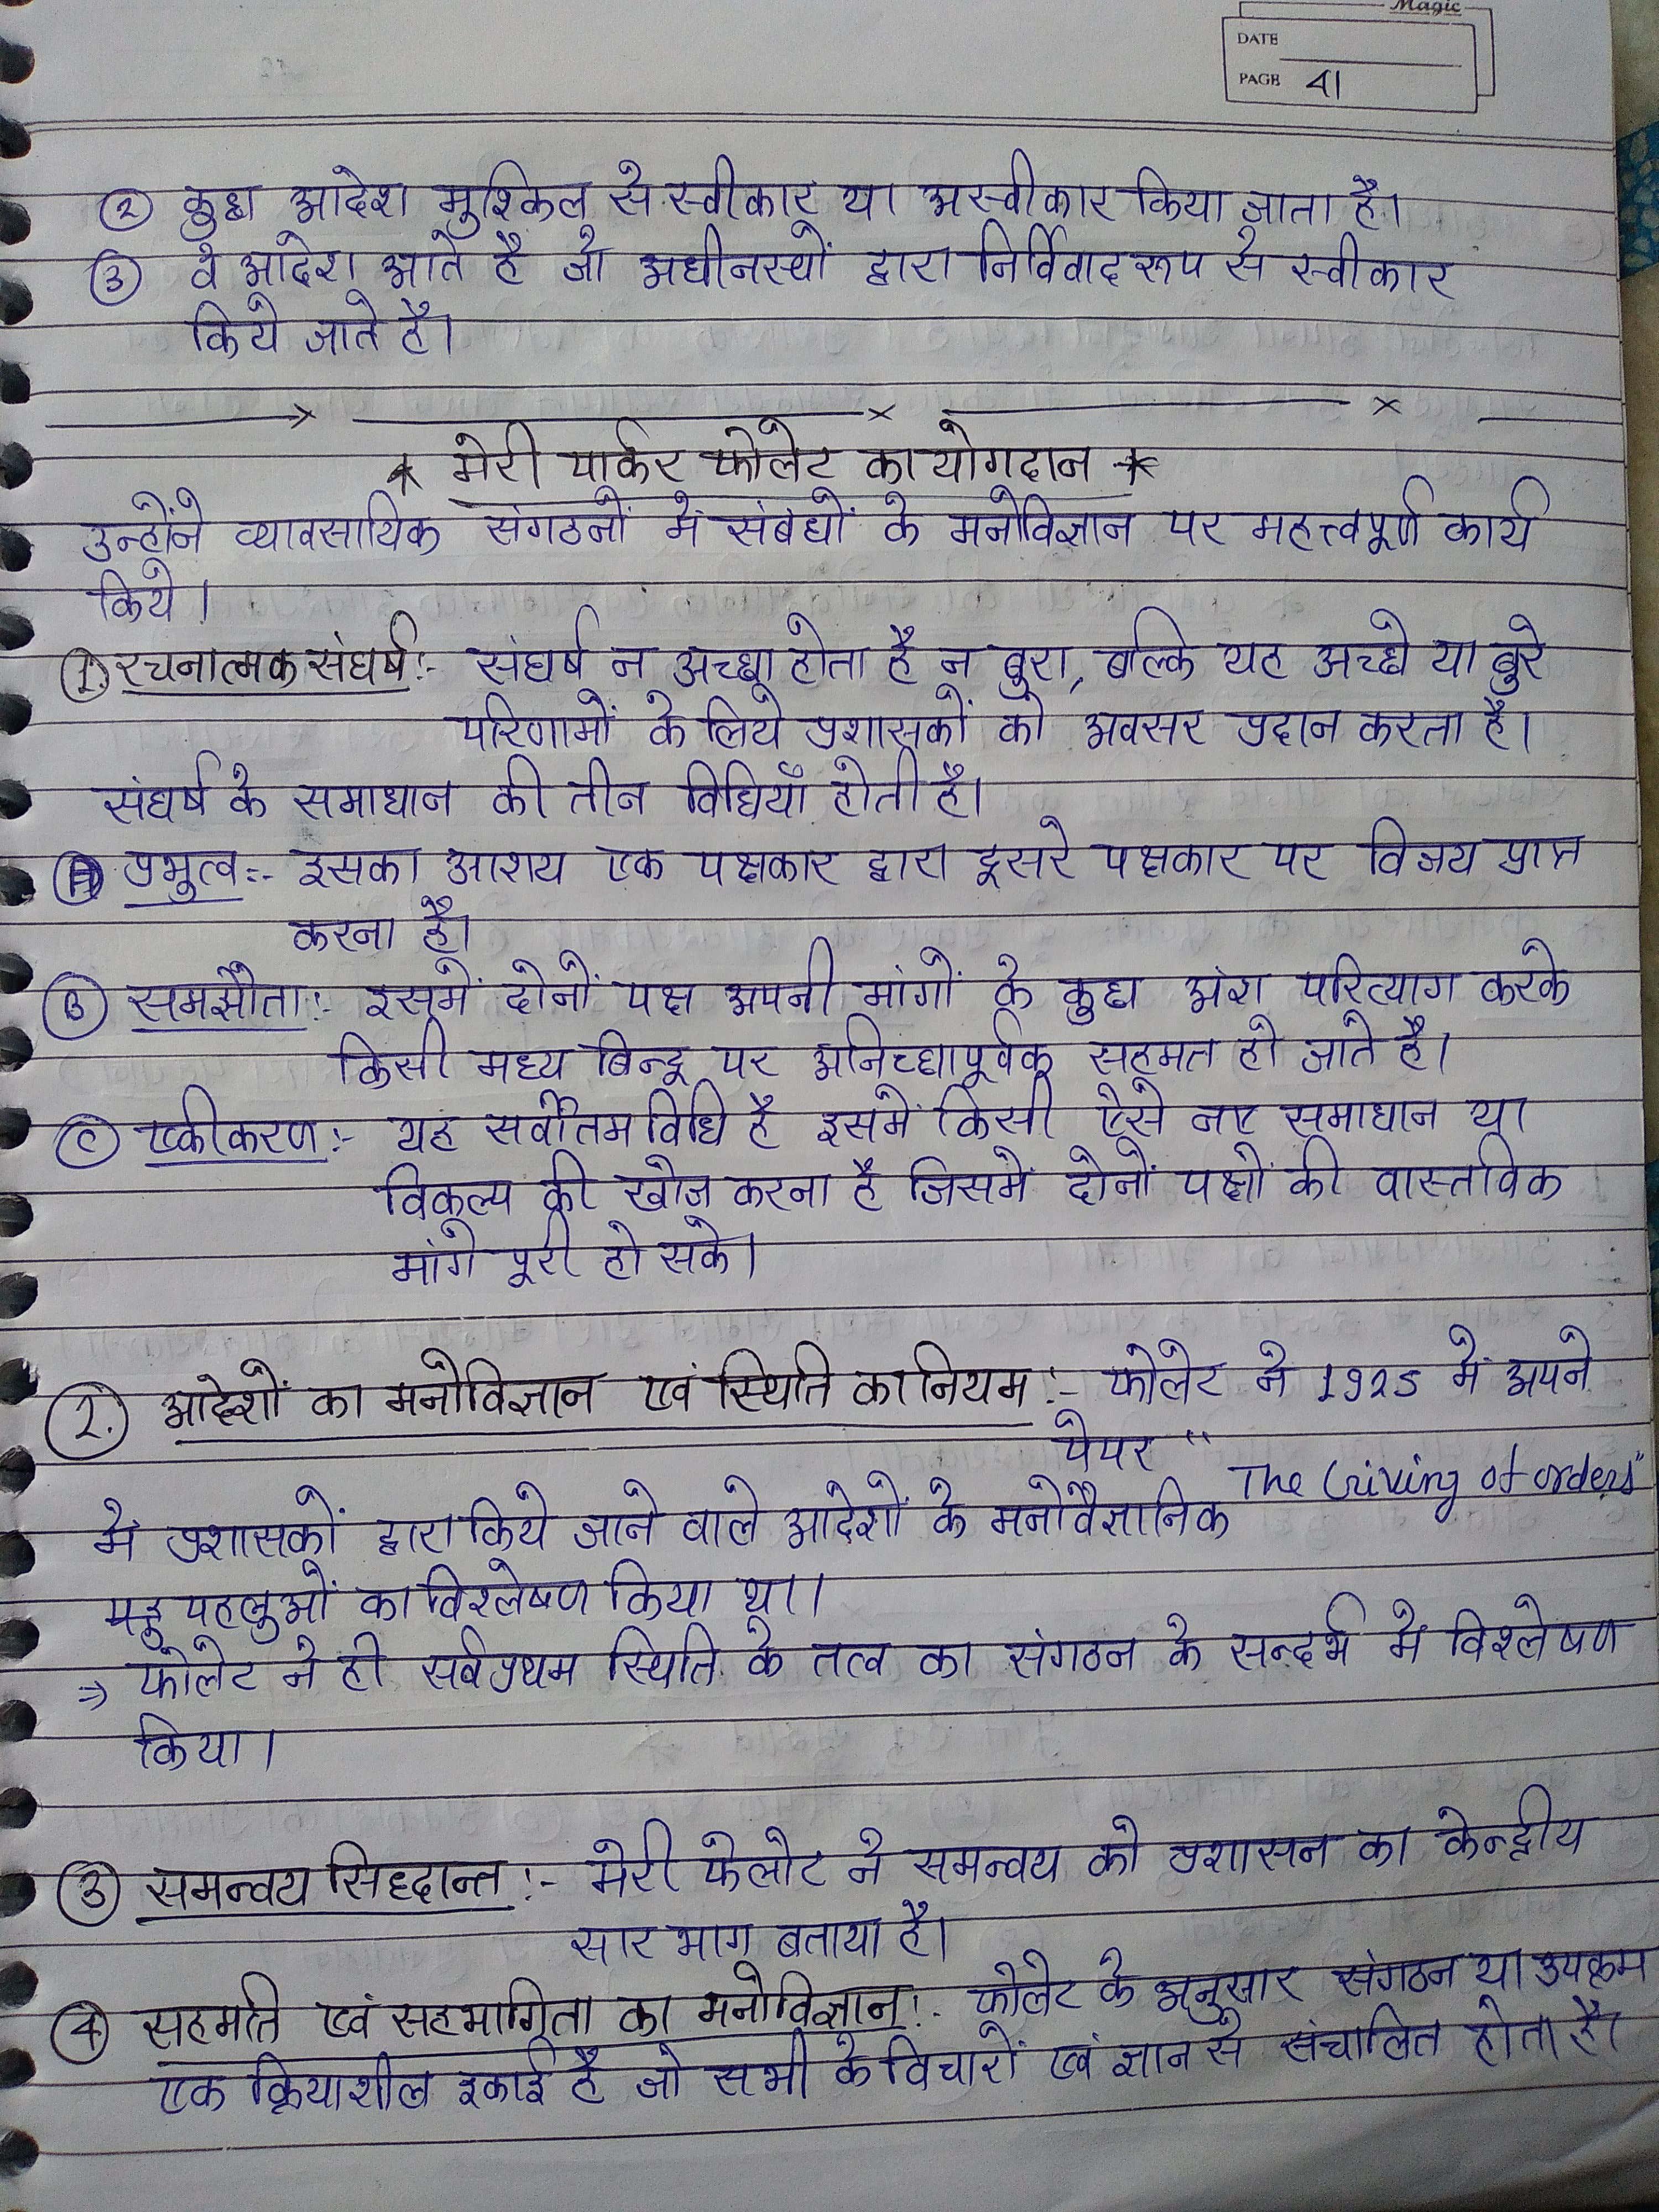 Magic
DATE
PAGE 41
② कुछ आदेश मुश्किल से स्वीकार या अस्वीकार किया जाता है।
③ वे आदेश आते है जो अधीनस्थों द्वारा निर्विवाद रूप से स्वीकार
किये जाते है।
* मेरी पार्कर फोलेट का योगदान *
उन्होंने व्यावसायिक संगठनों में संबंधों के मनोविज्ञान पर महत्त्वपूर्ण कार्य
किये।
①. रचनात्मक संघर्ष :- संघर्ष न अच्छा होता है न बुरा, बल्कि यह अच्छे या बुरे
परिणामों के लिये प्रशासकों को अवसर प्रदान करता है।
संघर्ष के समाधान की तीन विधियाँ होती है।
Ⓐ प्रभुत्व :- इसका आशय एक पक्षकार द्वारा दूसरे पक्षकार पर विजय प्राप्त
करना है।
Ⓑ समझौता :- इसमें दोनों पक्ष अपनी मांगों के कुछ अंश परित्याग करके
किसी मध्य बिन्दू पर अनिच्छापूर्वक सहमत हो जाते है।
Ⓒ एकीकरण :- यह सर्वोतम विधि है इसमें किसी ऐसे नए समाधान या
विकल्प की खोज करना है जिसमें दोनों पक्षों की वास्तविक
मांगे पूरी हो सके।
②. आदेशों का मनोविज्ञान एवं स्थिति का नियम :- फोलेट ने 1925 में अपने
पेपर "The Giving of orders"
में प्रशासकों द्वारा किये जाने वाले आदेशों के मनोवैज्ञानिक
पहलुओं का विश्लेषण किया था।
⇒ फोलेट ने ही सर्वप्रथम स्थिति के तत्व का संगठन के सन्दर्भ में विश्लेषण
किया।
③ समन्वय सिद्दान्त :- मेरी फेलोट ने समन्वय को प्रशासन का केन्द्रीय
सार भाग बताया है।
④ सहमति एवं सहभागिता का मनोविज्ञान :- फोलेट के अनुसार संगठन या उपक्रम
एक क्रियाशील इकाई है जो सभी के विचारों एवं ज्ञान से संचालित होता है।